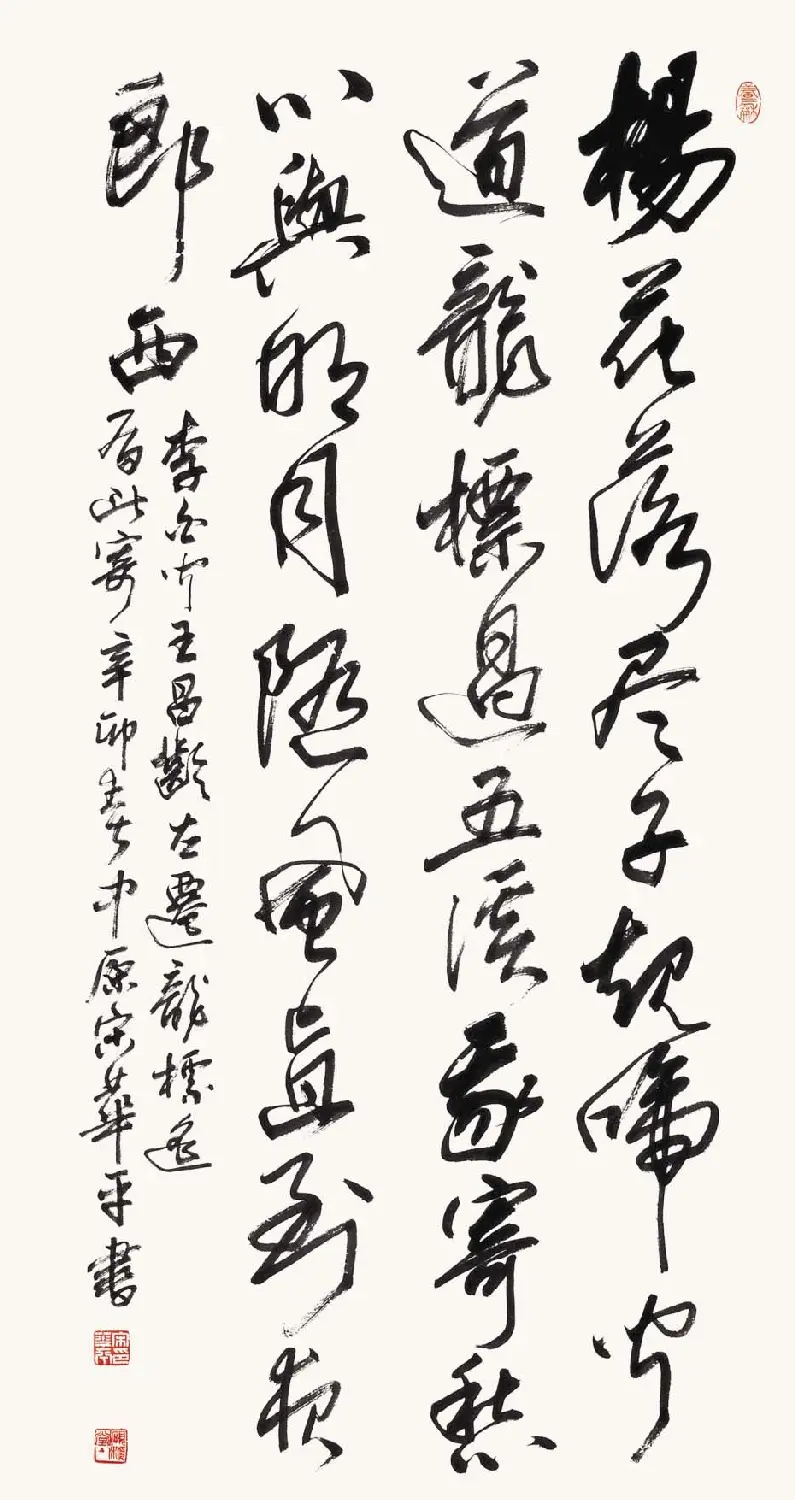 楊花落尽子規啼聞
道龍標過五溪我寄愁
心與明月隨風直到夜
郎西
李白聞王昌齡左遷龍標遙
有此寄辛卯春中原宋華平書